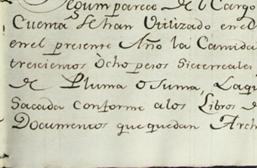 Segun parece de l Cargo
Cuenta se han Utilizado en el
en el presente Año la Cantidad
trescientos Ocho pesos Sieterreales
de Pluma o Suma, Laqu
Sacada conforme alos Libros d
Documentos que quedan Arch